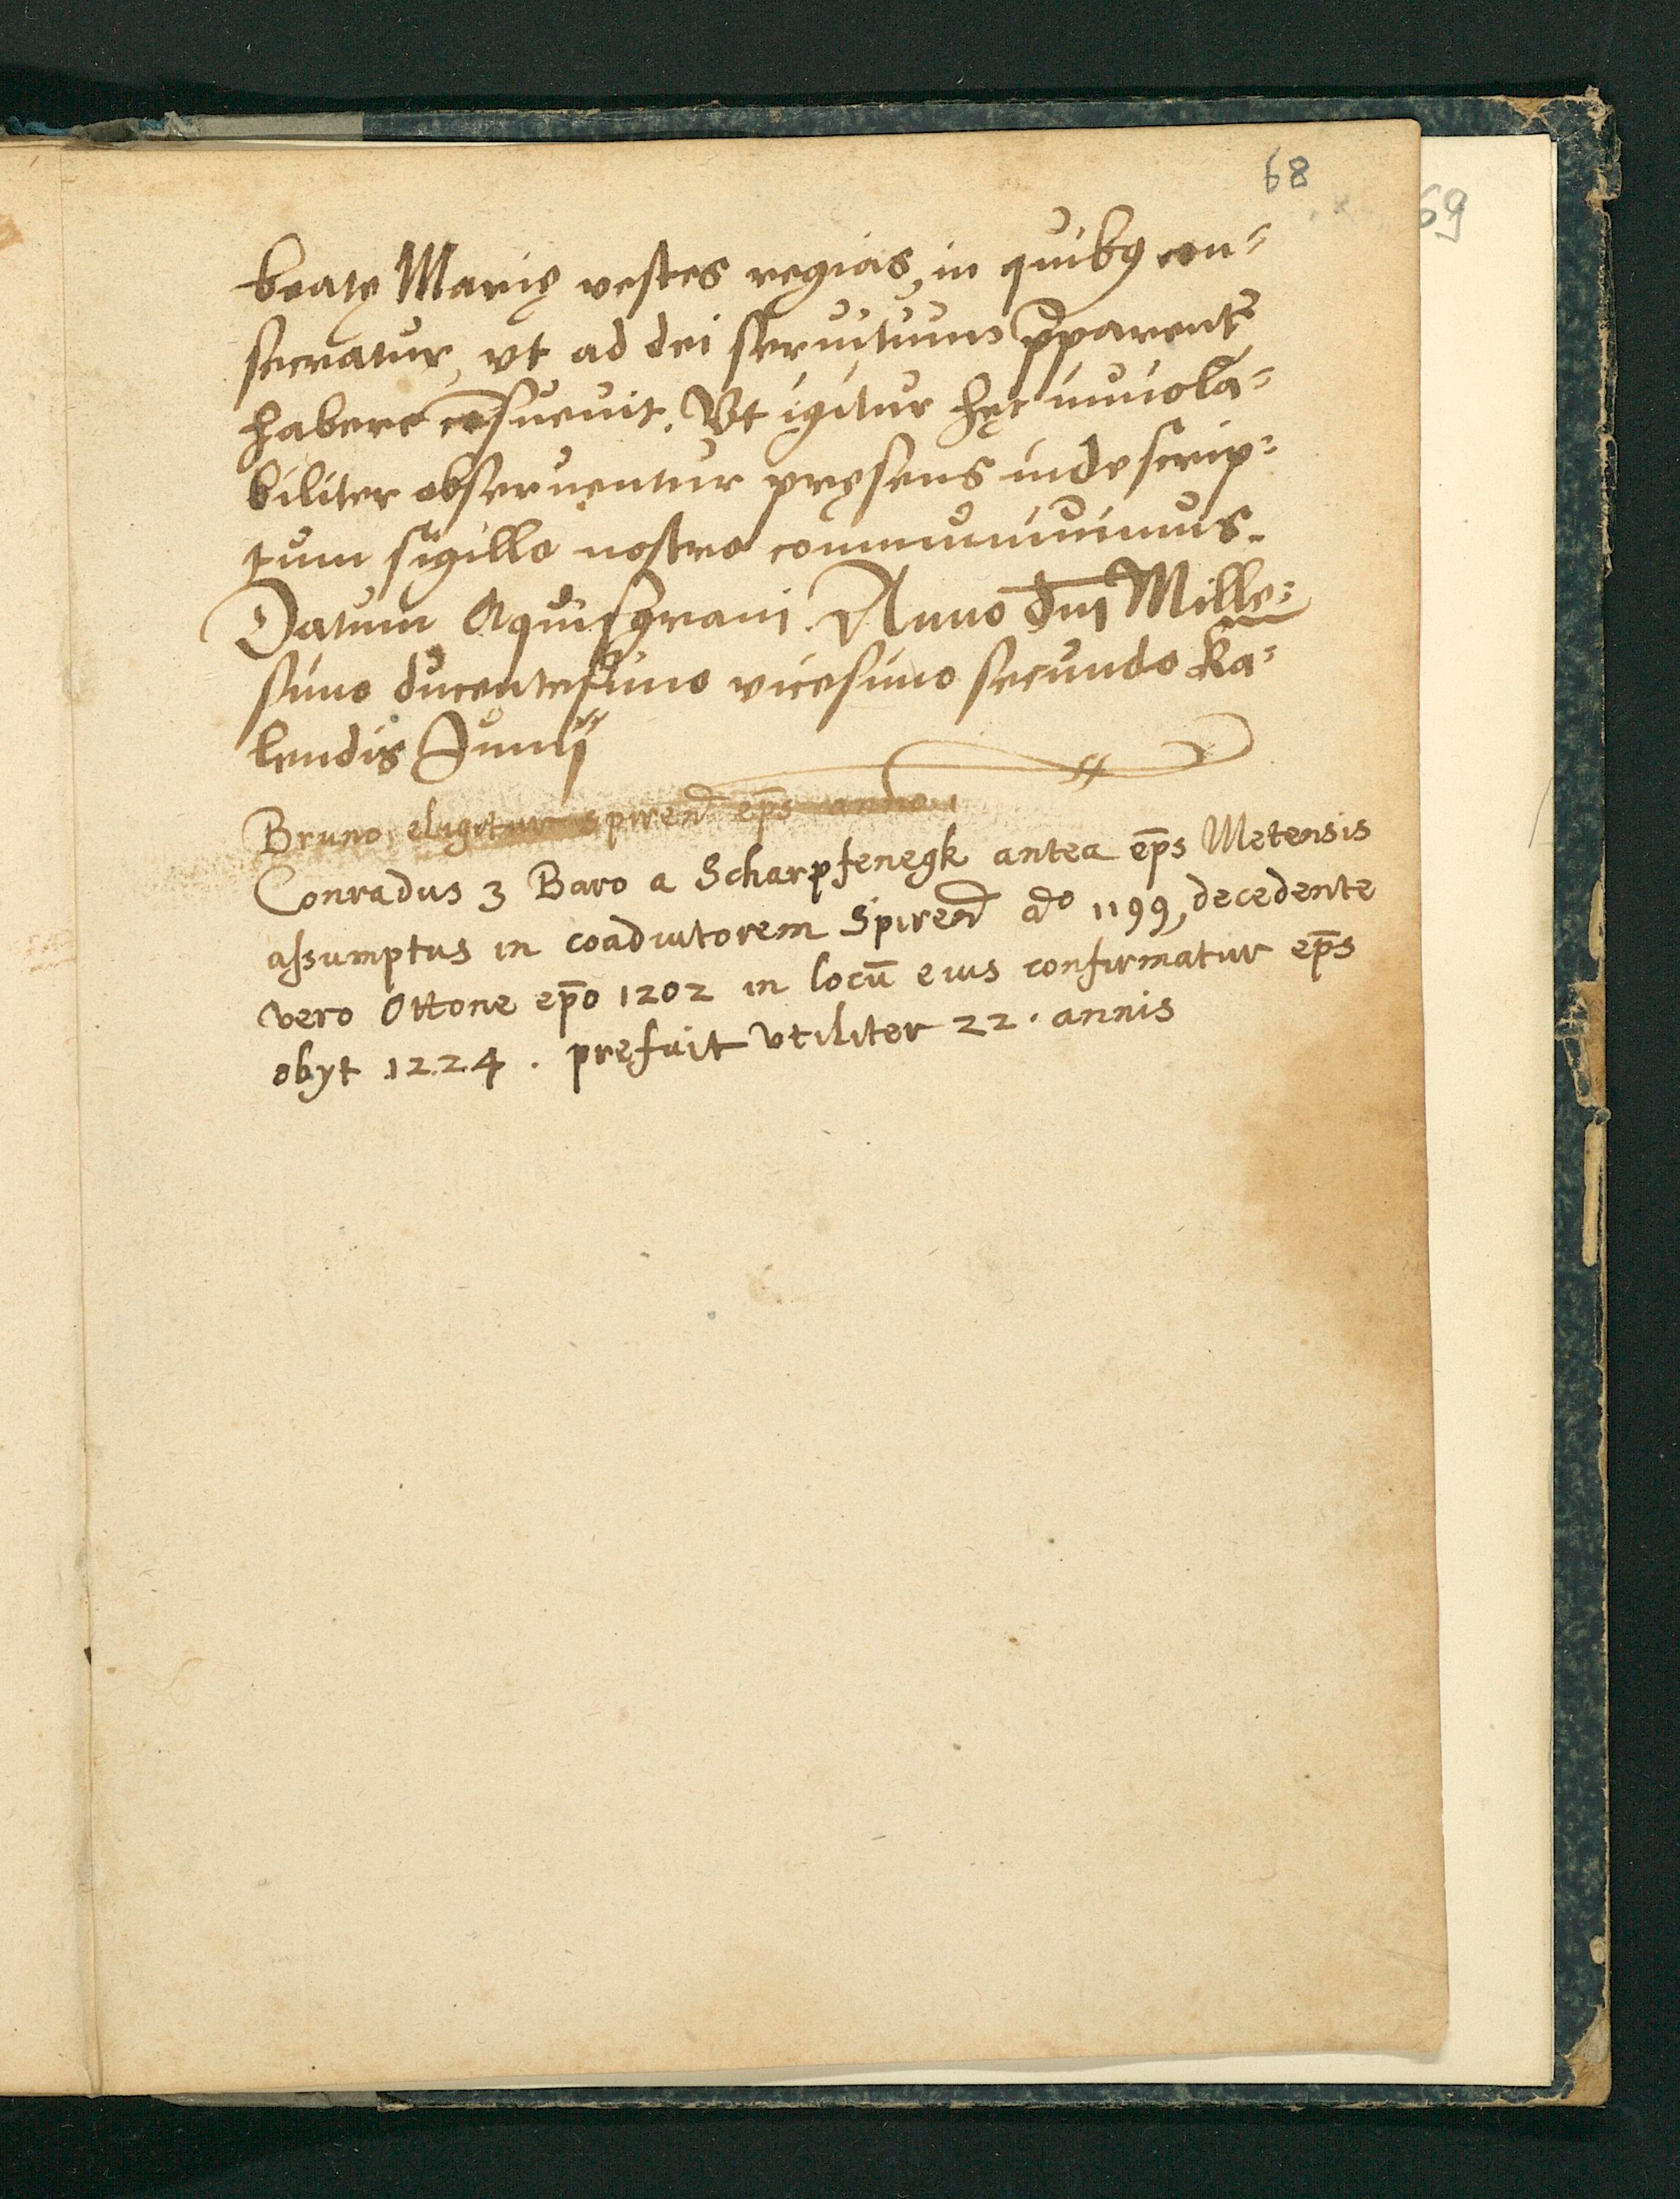 68
69
beatę Marię vestes regias, in quibꝫ con=
secratur, vt ad dei seruitium p̄parent᷑
habere cōsueuit. Vt igitur hęc inuiola=
biliter obseruentur pręsens inde scrip=
tum sigillo nostro communiuimus.
Datum Aquisgrani. Anno dn̄i Mille=
simo ducentesimo vicesimo secundo Ka=
lendis Junij
Bruno eligitur spiren̄ ep̄s anno 1
Conradus 3 Baro a Scharpfenegk antea ep̄s Metensis
assumptus in coadiutorem Spiren̄ aº 1199, decedente
vero Ottone ep̄o 1202 in locū eius confirmatur ep̄s
obyt 1224. pręfuit vtiliter 22. annis